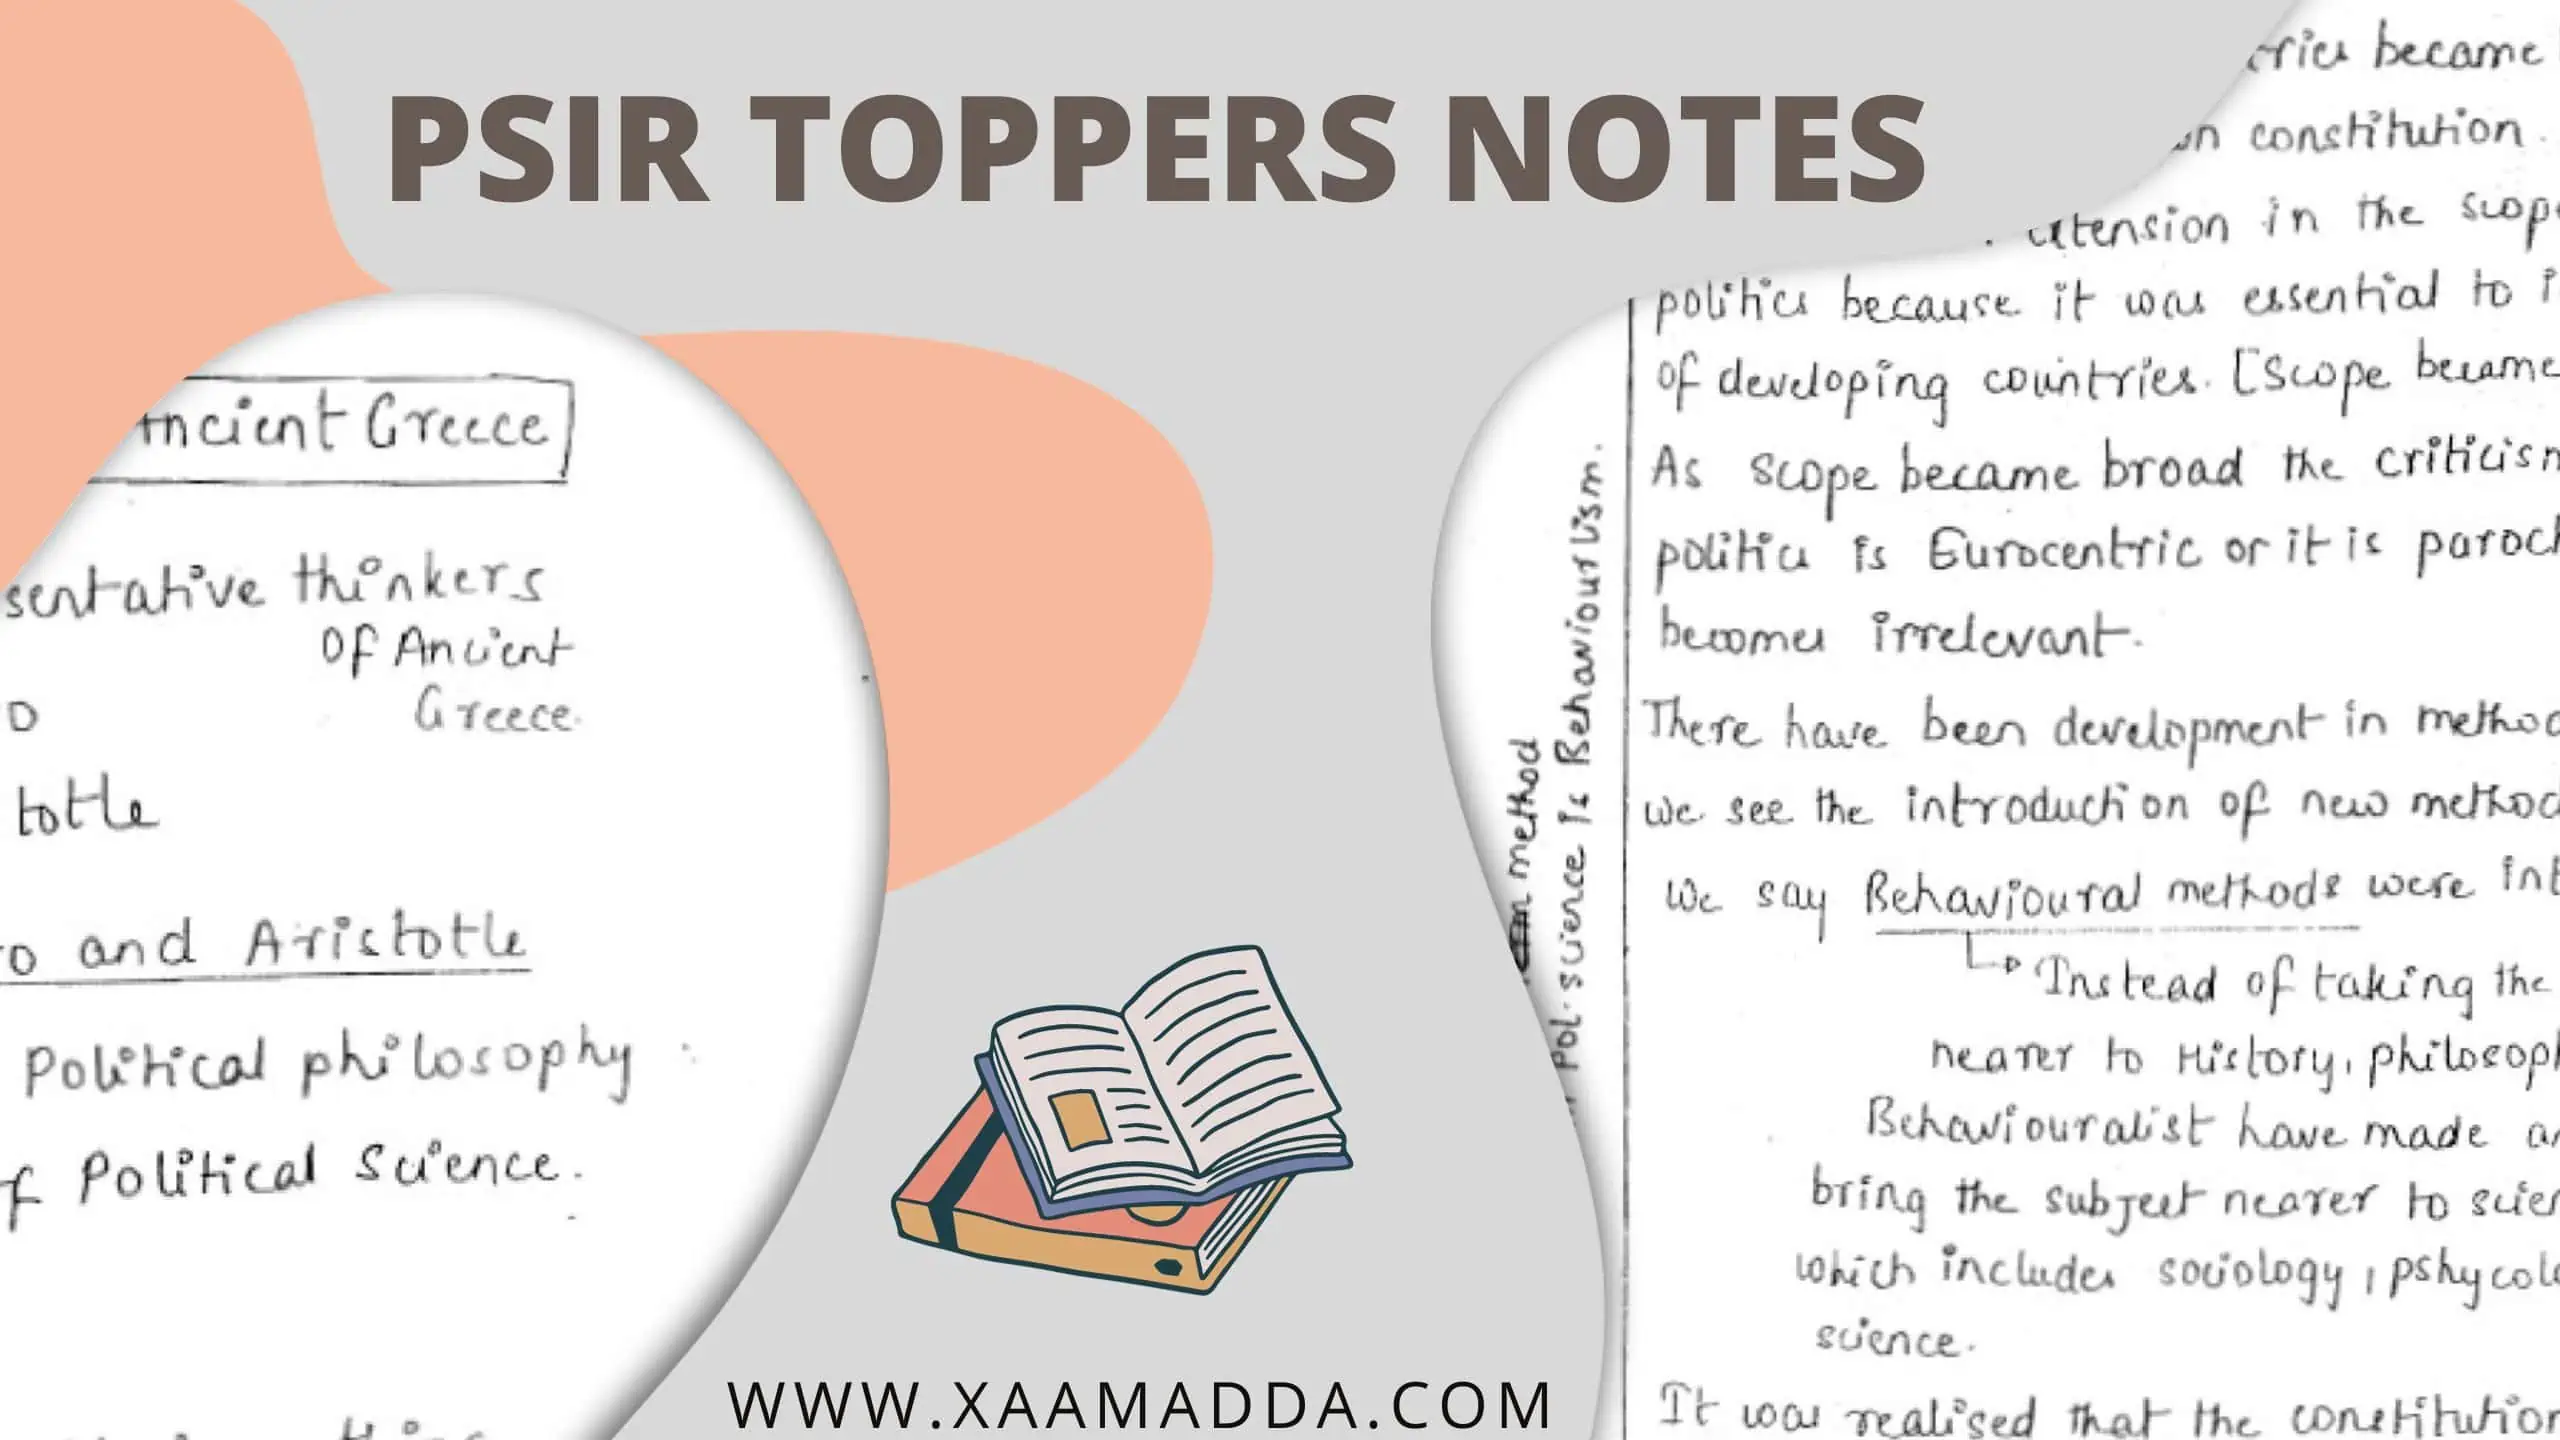 PSIR TOPPERS NOTES
Ancient Greece
sentative thinkers
Of Ancient
Greece.
totle
and Aristotle
Political philosophy
Political Science.
became
constitution.
in the scope
politics because it was essential to
of developing countries. [Scope became
As scope became broad the criticism
politics is Eurocentric or it is paroch
becomes irrelevant.
There have been development in method
we see the introduction of new method
We say Behavioural methods were int
Instead of taking the
nearer to History, philosoph
Behaviouralist have made
bring the subject nearer to scien
which includes sociology, pshycolo
science.
It was realised that the constitution
method
Pol. science is Behaviourlism.
WWW.XAAMADDA.COM